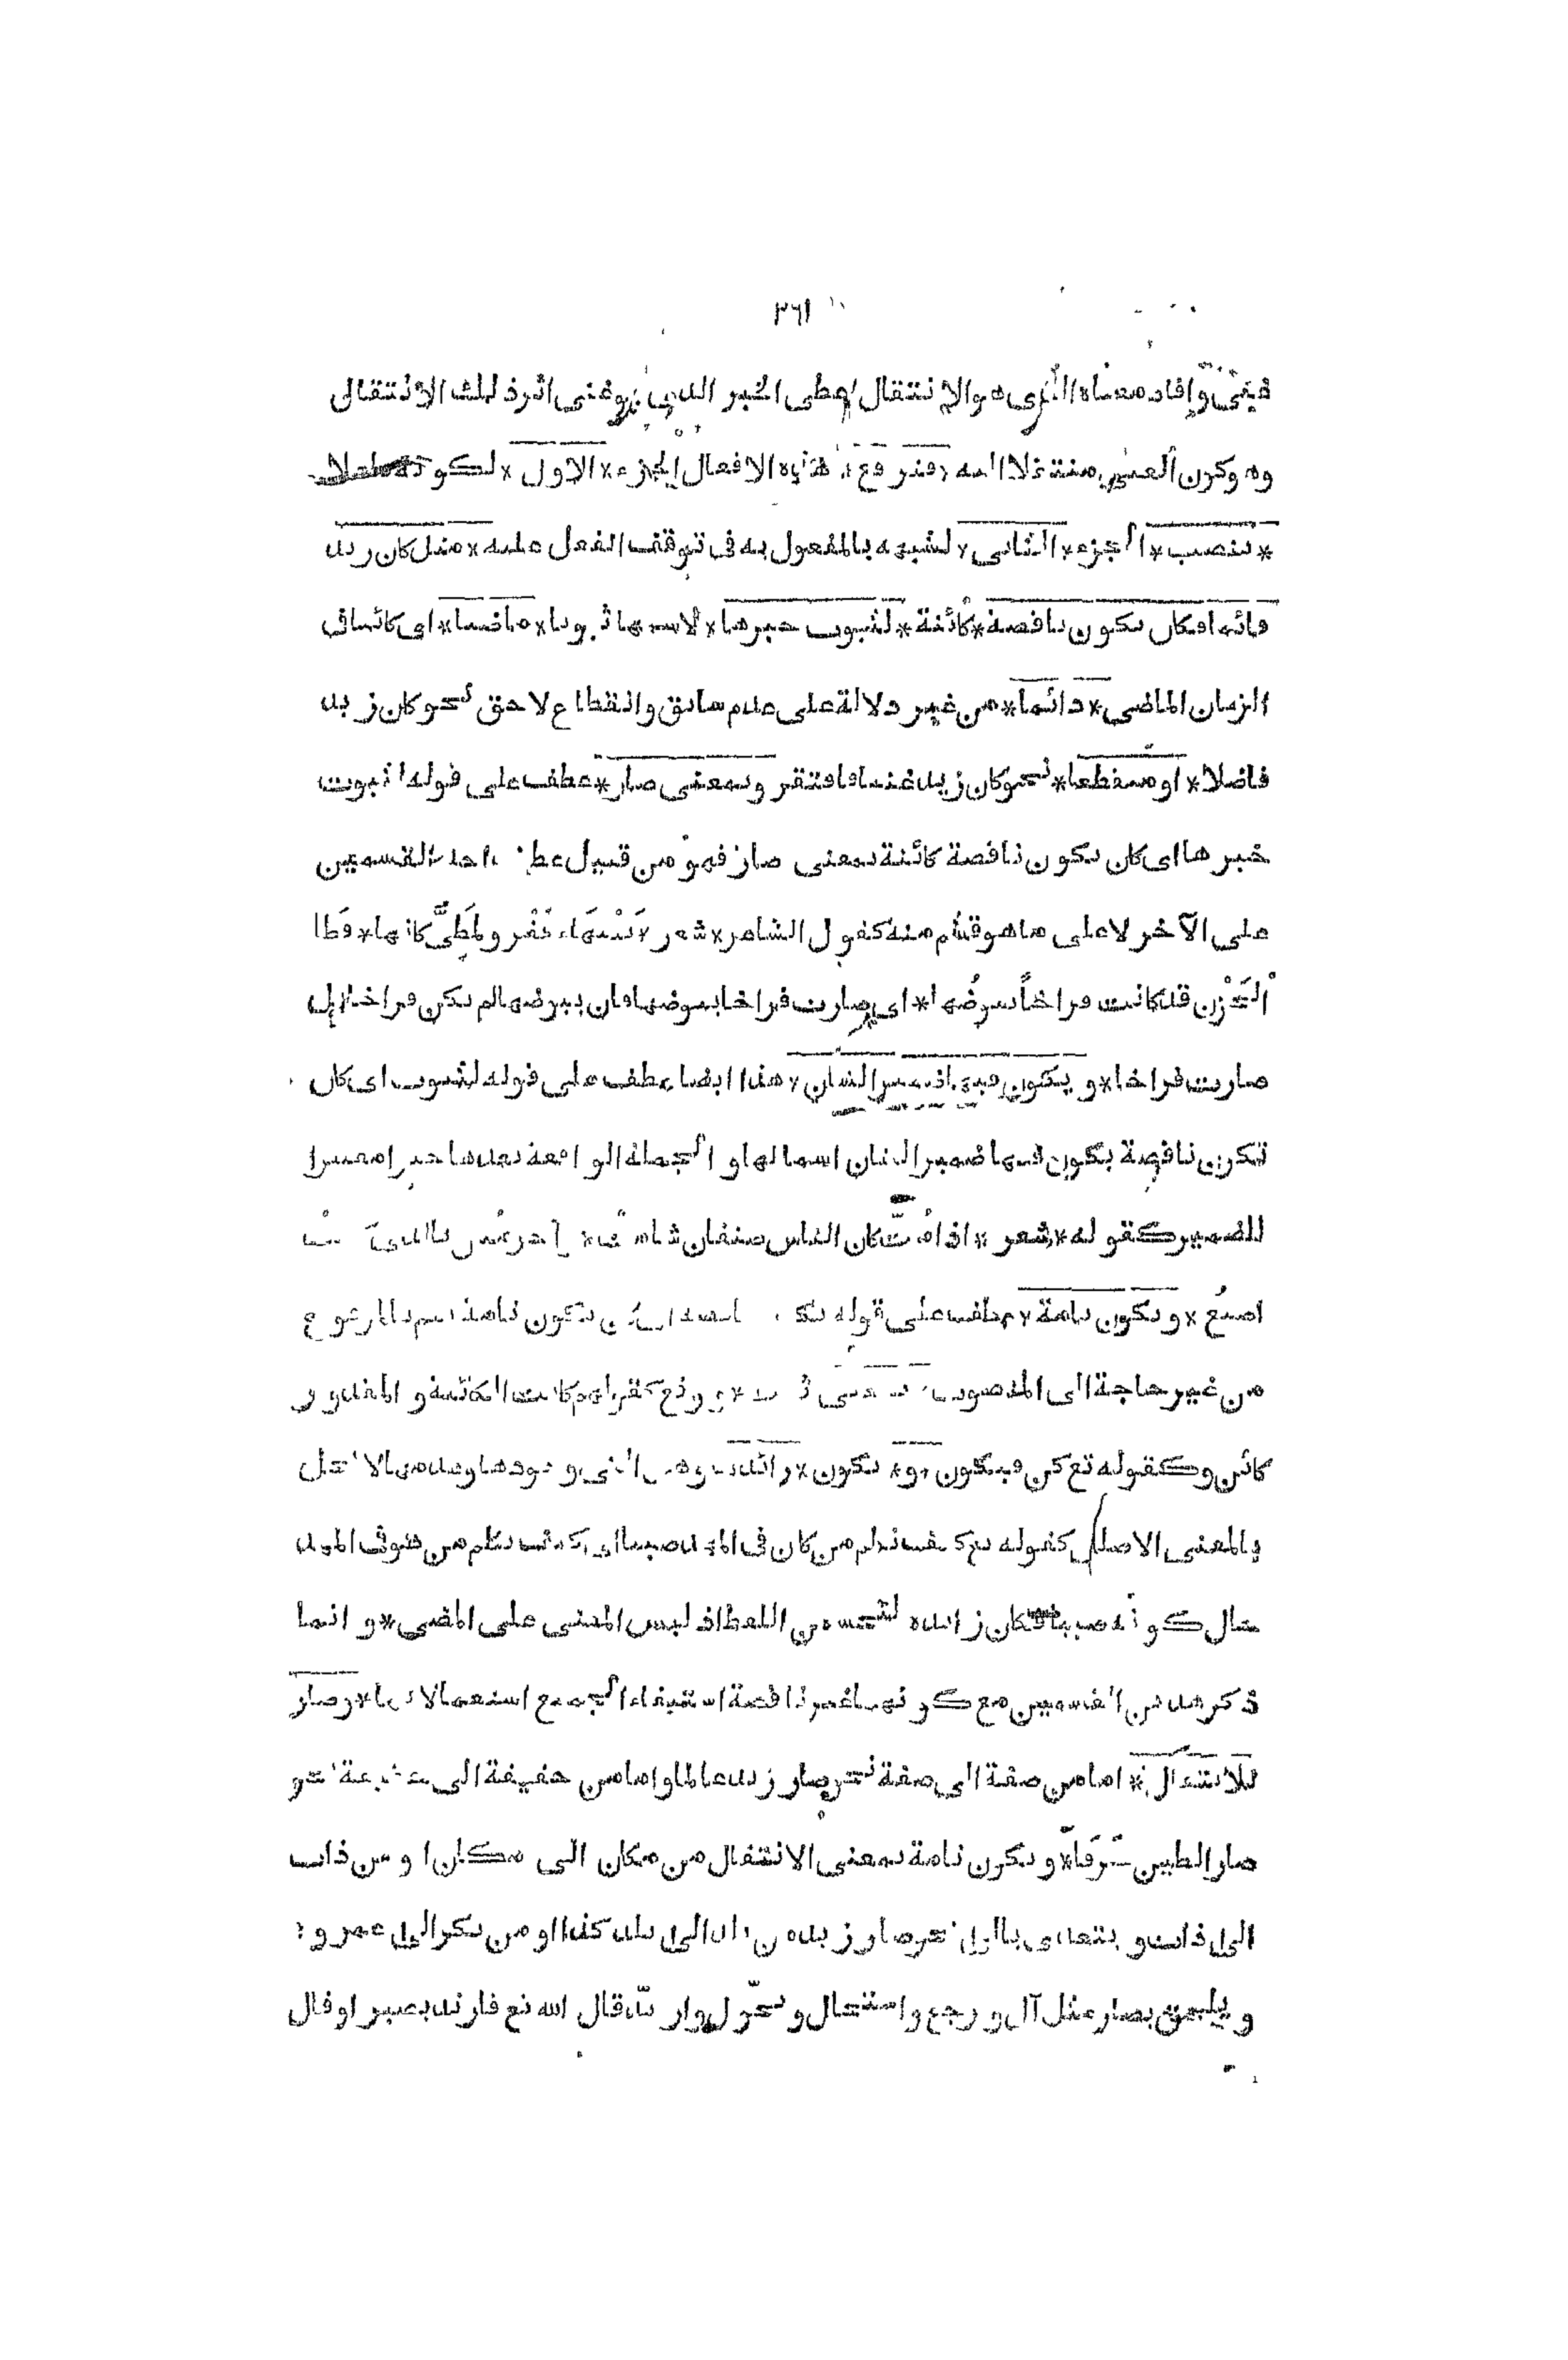 ٣٦١
غني وافاد معناه الذي هو الانتقال اعطى الخبر الذي هو غني اثر ذلك الانتقال
وهو كون الغني منتقلا اليه * فترفع * هذه الافعال الجزء * الاول * لكونه فاعلا
* وتنصب * الجزء * الثاني * لشبهه بالمفعول به في توقف الفعل عليه * مثل كان زيد
قائما فكان تكون ناقصة * كائنة * لثبوت خبرها * لاسمها ثبوتا * ماضيا * اى كائنا في
الزمان الماضي * دائما * من غير دلالة على عدم سابق وانقطاع لاحق نحو كان زيد
فاضلا * او منقطعا * نحو كان زيد غنيا فافتقر وبمعنى صار * عطف على قوله لثبوت
خبرها اى كان تكون ناقصة كائنة بمعنى صار فهو من قبيل عطف احد القسمين
على الآخر لا على ما هو قسم منه كقول الشاعر * شعر * بتيهاء قفر والمطي كانها * قطا
الحزن قد كانت فراخا بيوضها * اى صارت فراخا بيوضها فان بيوضها لم تكن فراخا بل
صارت فراخا * و يكون فيها ضمير الشان * هذا ايضا عطف على قوله لثبوت اى كان
تكون ناقصة يكون فيها ضمير الشان اسما لها و الجملة الواقعة بعدها خبرا مفسرا
للضمير كقوله * شعر * اذا مت كان الناس صنفان شامت * و آخر مثن بالذي كنت
اصنع * و تكون تامة * عطف على قوله تكون تكون تامة تتم بالمرفوع
من غير حاجة الى المنصوب بمعنى ثبت * و وقع كقولهم كانت الكائنة و المقدور
كائن و كقوله تع كن فيكون * و * تكون * زائدة * وهى التي وجودها وعدمها لا يخل
بالمعنى الاصلي كقوله تع كيف نكلم من كان في المهد صبيا اى كيف نكلم من هو في المهد
حال كونه صبيا فكان زائدة لتحسين اللفظ اذ ليس المعنى على المضي * و انما
ذكر هذين القسمين مع كونهما غير ناقصة استيفاء لجميع استعمالاتها * وصار
للانتقال * اما من صفة الى صفة نحو صار زيد عالما واما من حقيقة الى حقيقة نحو
صار الطين خزفا * و تكون تامة بمعنى الانتقال من مكان الى مكان او من ذات
الى ذات و يتعدى بالى نحو صار زيد من بلد الى بلد كذا او من بكر الى عمرو
و يلحق بصار مثل آل و رجع و استحال و تحول وارتد قال الله تع فارتد بصيرا وقال